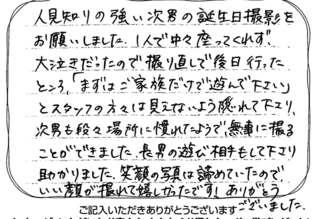 人見知りの強い次男の誕生日撮影を
お願いしました。1人で中々座ってくれず、
大泣きだったので撮り直しで後日行った
ところ、「まずはご家族だけで遊んで下さい」
とスタッフの方々は見えないよう隠れて下さり、
次男も段々場所に慣れたようで、無事に撮る
ことができました。長男の遊び相手もして下さり
助かりました。笑顔の写真は諦めていたので
いい顔が撮れて嬉しかったです！ありがとう
ございました。
ご記入いただきありがとうございます